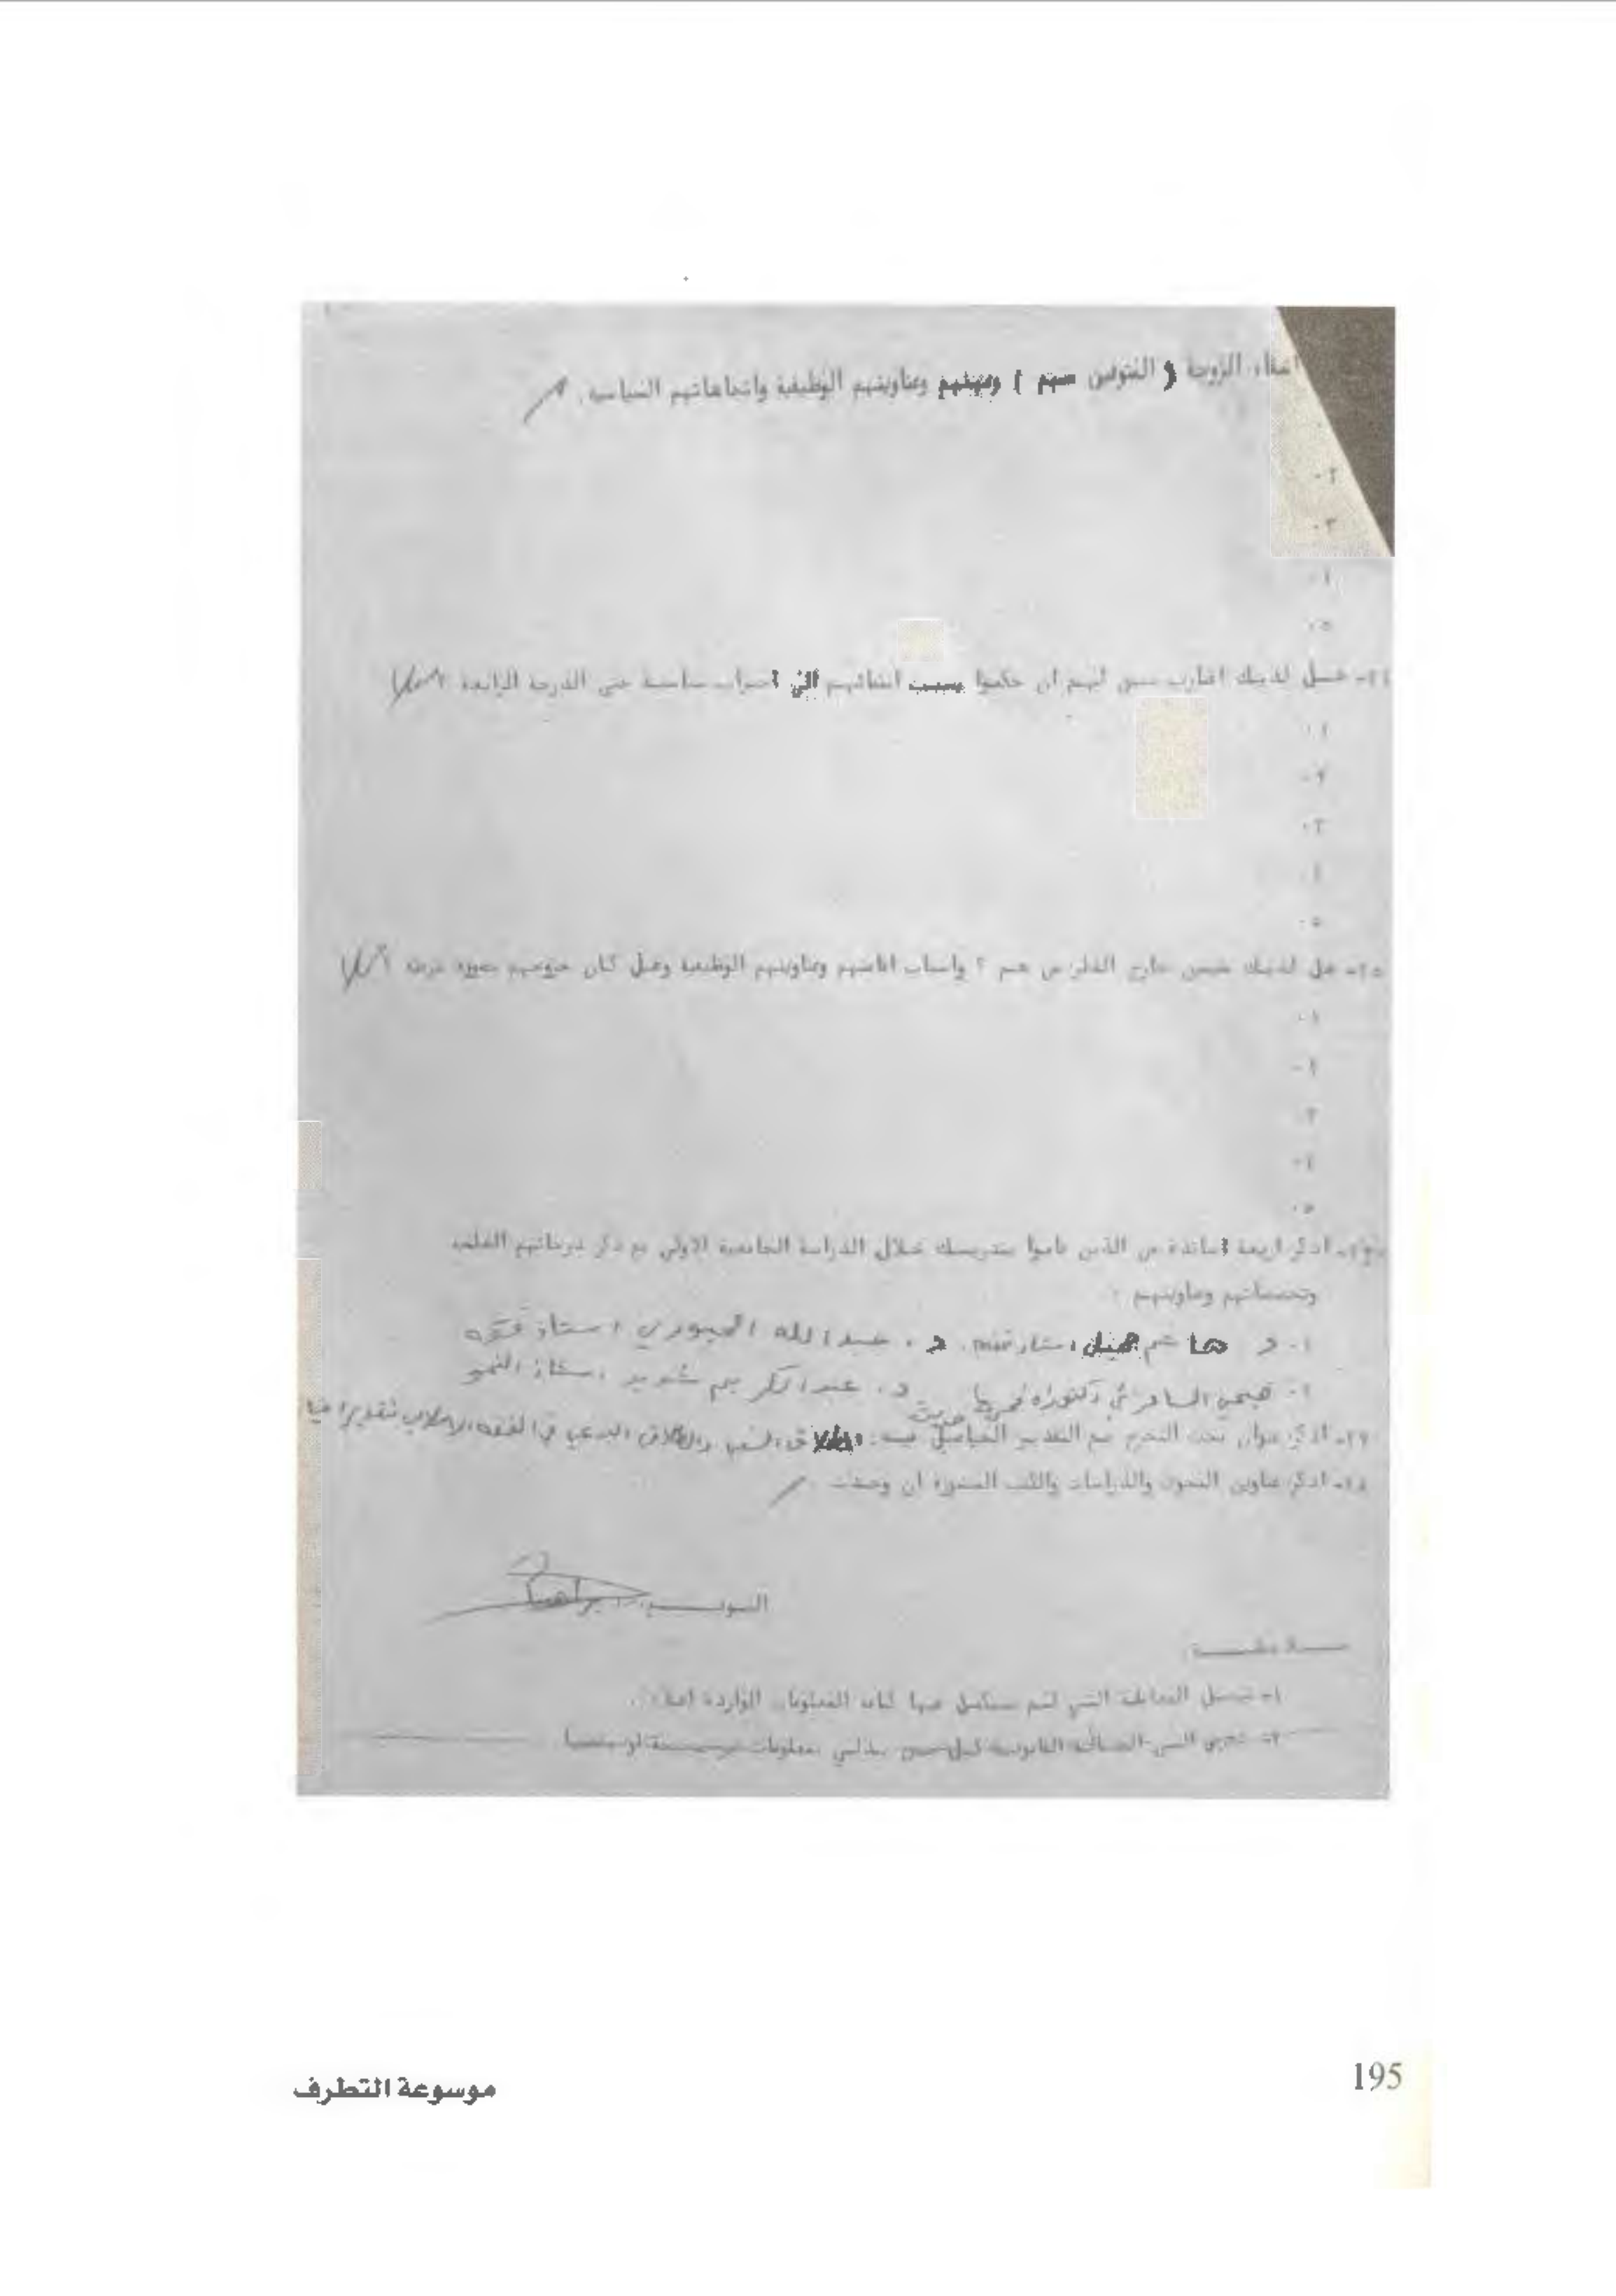 اشقاء الزوجة ( المتوفين منهم ) ومهنهم وعناوينهم الوظيفية واتجاهاتهم السياسية .
٢-
٣-
٤-
٥-
٢٤- هل لديك اقارب سبق لهم ان حكموا بسبب انتمائهم الى احزاب سياسية حتى الدرجة الرابعة كلا
١-
٢-
٣-
٤-
٥-
٢٥- هل لديك خارج القطر من هم ؟ واسباب اقامتهم وعناوينهم الوظيفية وهل كان خروجهم بصورة كلا
١-
٢-
٣-
٤-
٥-
٢٦- اذكر اربعة اساتذة من الذين قاموا بتدريسك خلال الدراسة الجامعية الاولى مع ذكر درجاتهم العلمية
وتخصصاتهم وعناوينهم :
١- د هاشم جميل استاذ فقه . د . عبد الله الجبوري استاذ فقه
٢- صبحي السامرائي حديث د . عبد الكريم استاذ النحو
٢٧- اذكر عنوان بحث التخرج مع التقدير الحاصل فيه . الطلاق السني والطلاق البدعي في الفقه الاسلامي
٢٨- اذكر عناوين البحوث والدراسات والكتب المنشورة ان وجدت .
التوقيع ابراهيم
ملاحظة
١- تهمل المعاملة التي لم يستكمل فيها كافة المعلومات الواردة اعلاه .
موسوعة التطرف
195